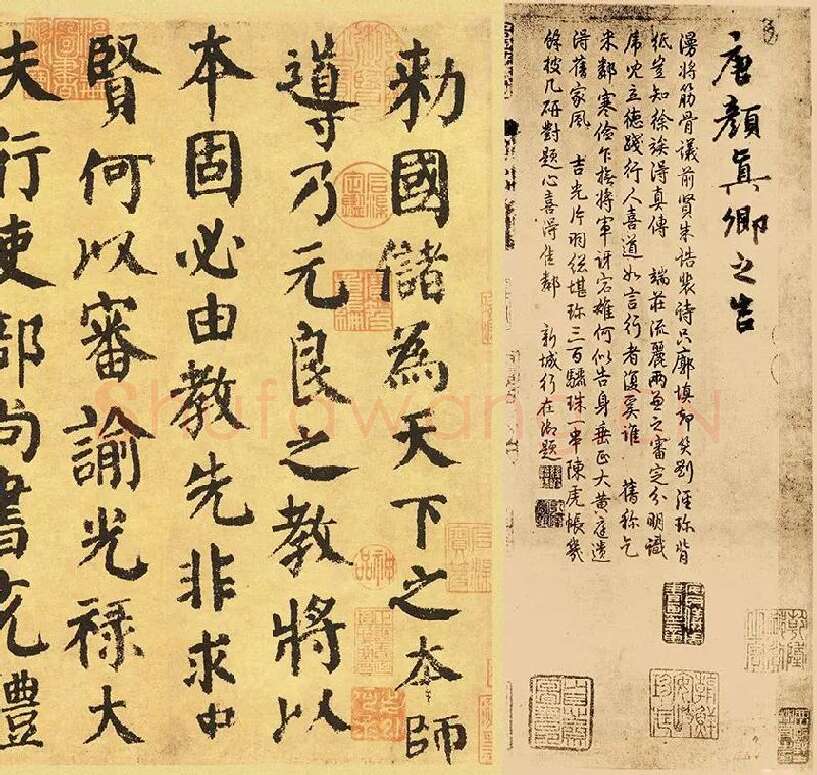 唐顏真卿之告
漫將筋骨議前賢朱誥裴詩只廓填卻笑劉涇珍背
紙豈知徐族得真傳 端莊流麗兩兼之審定分明識
席立德踐行人喜道如言行者復奚誰 舊称乞
米鄰寒儉乍撫將軍訝宕雄何似告身垂正大黃庭遺
得舊家風 吉光片羽總堪珍三百驪珠一串陳虎帳幾
餘披几研對題心喜得佳鄰 新城行在御題
勅國儲為天下之本師
導乃元良之教將以
本固必由教先非求中
賢何以審諭光祿大
夫行吏部尚書充禮
神品
Shufawang.CN